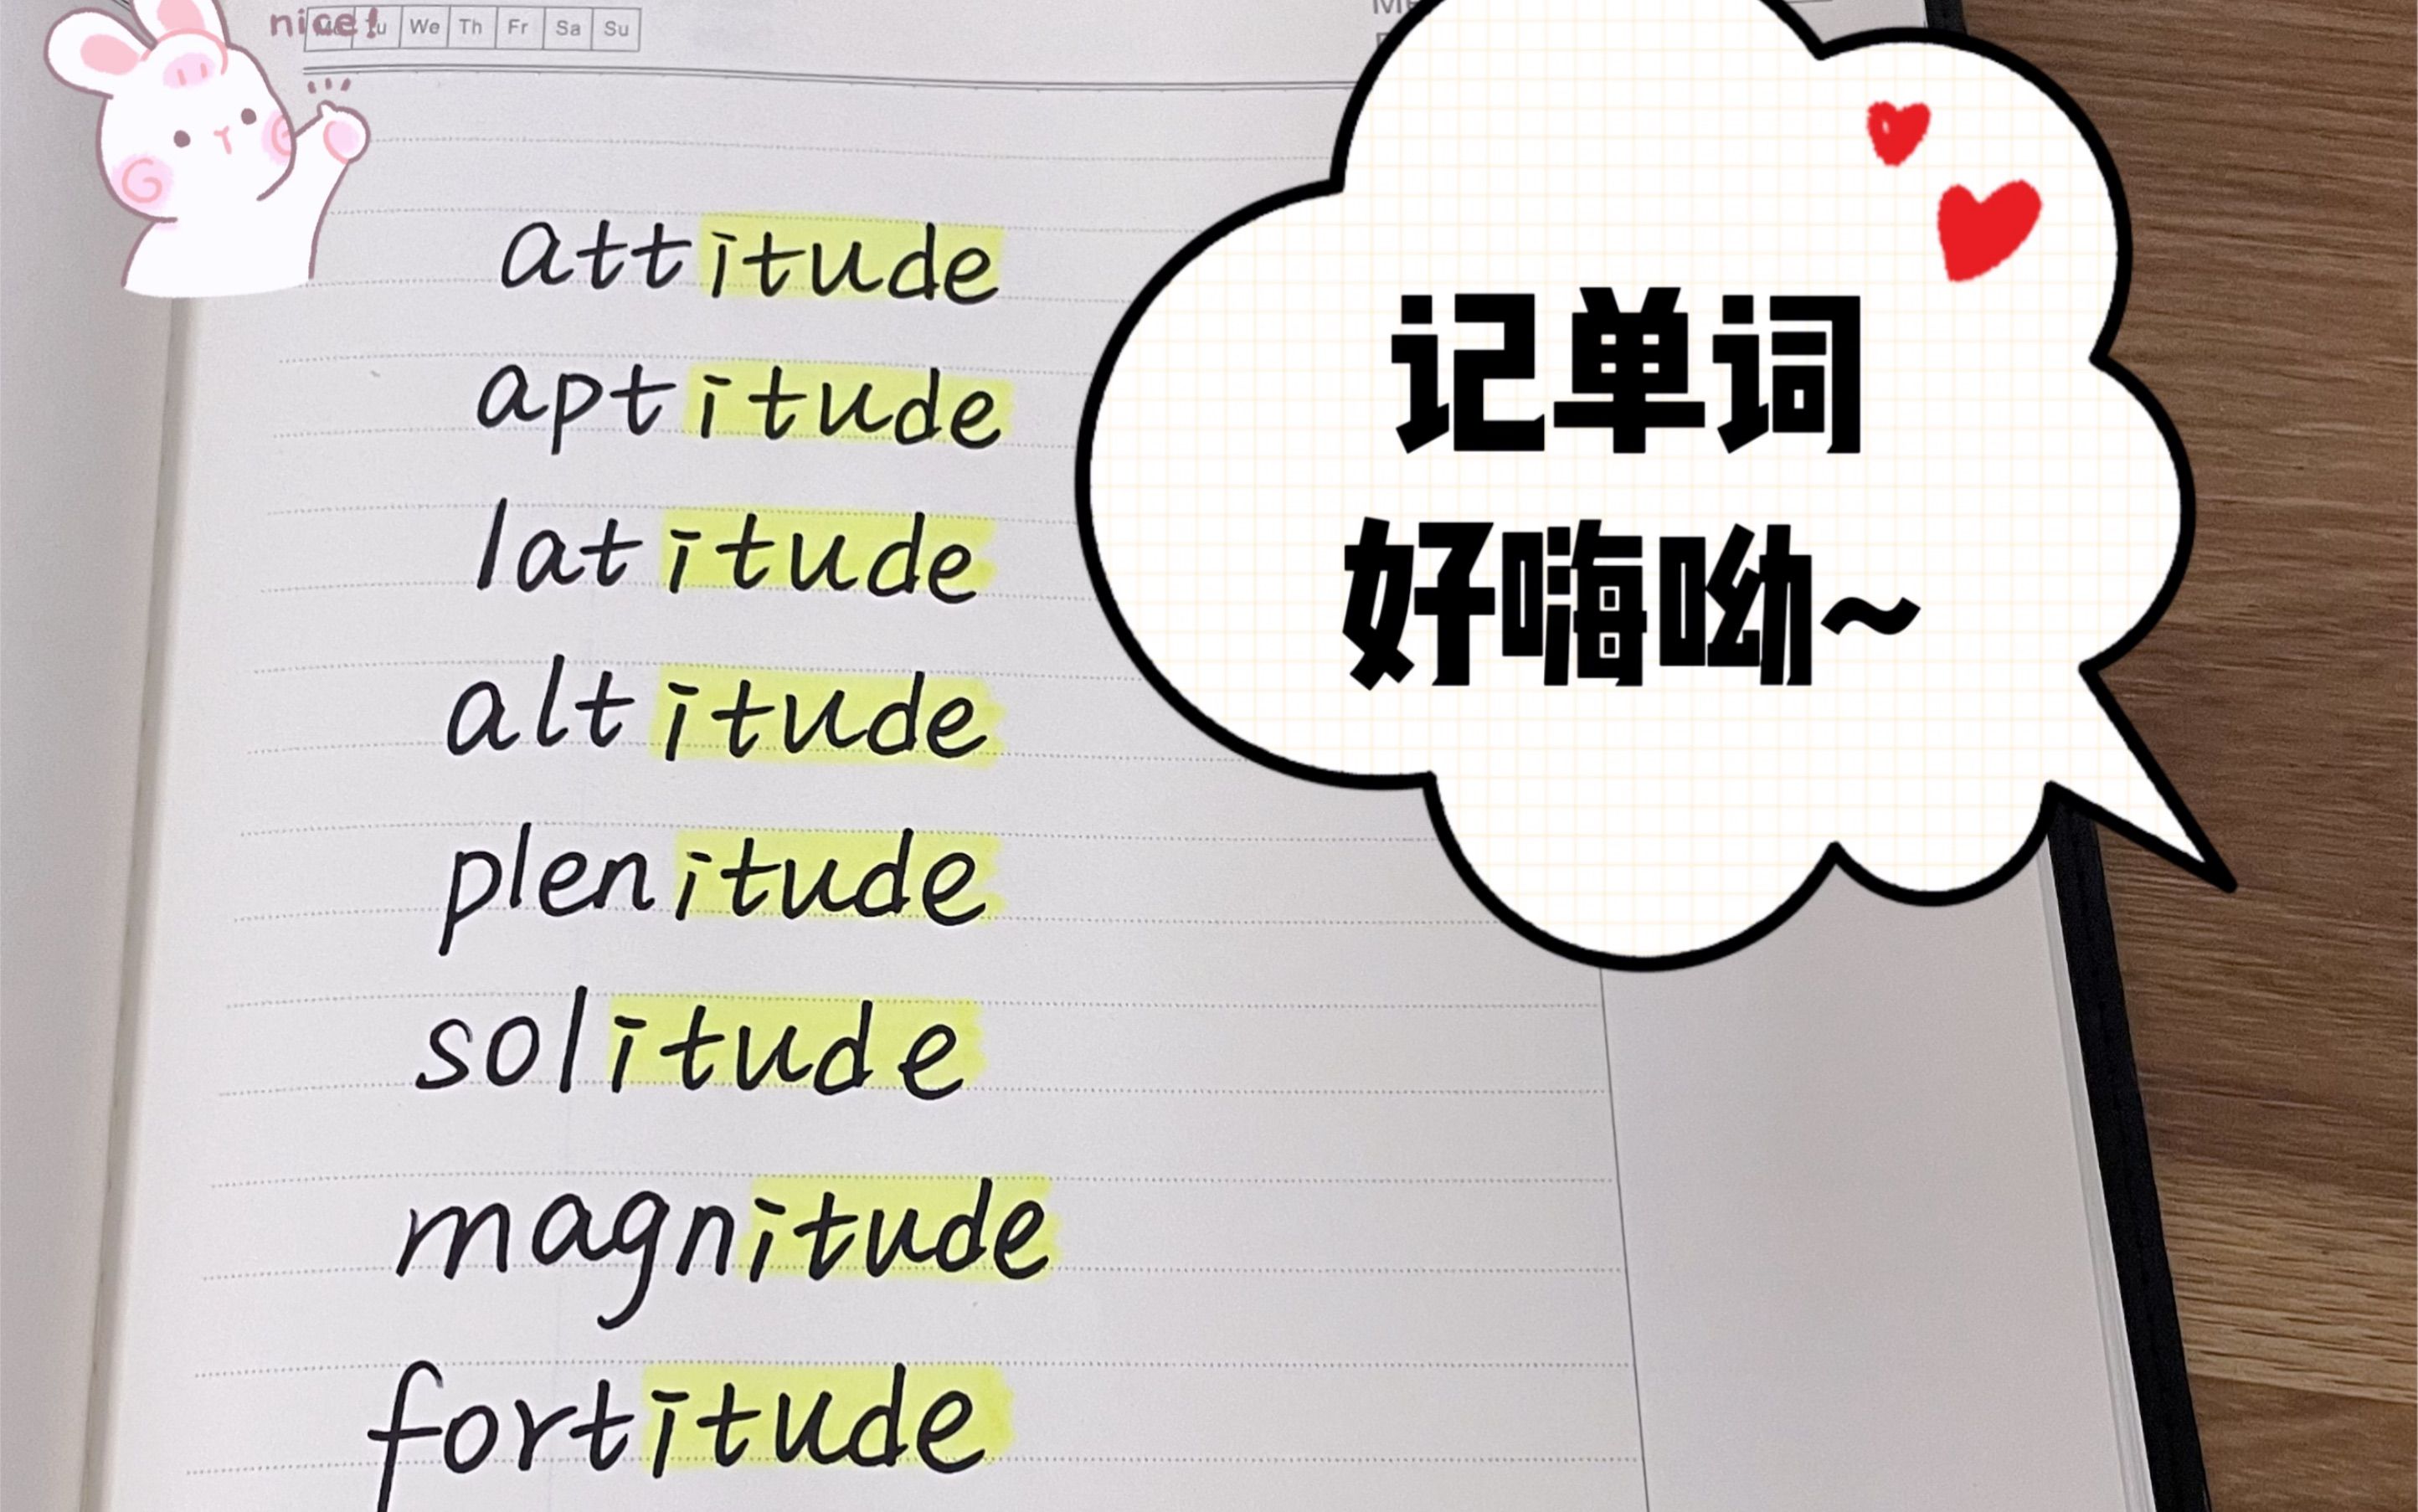 nice!
We Th Fr Sa Su
attitude
aptitude
latitude
altitude
plenitude
solitude
magnitude
fortitude
记单词
好嗨呦~